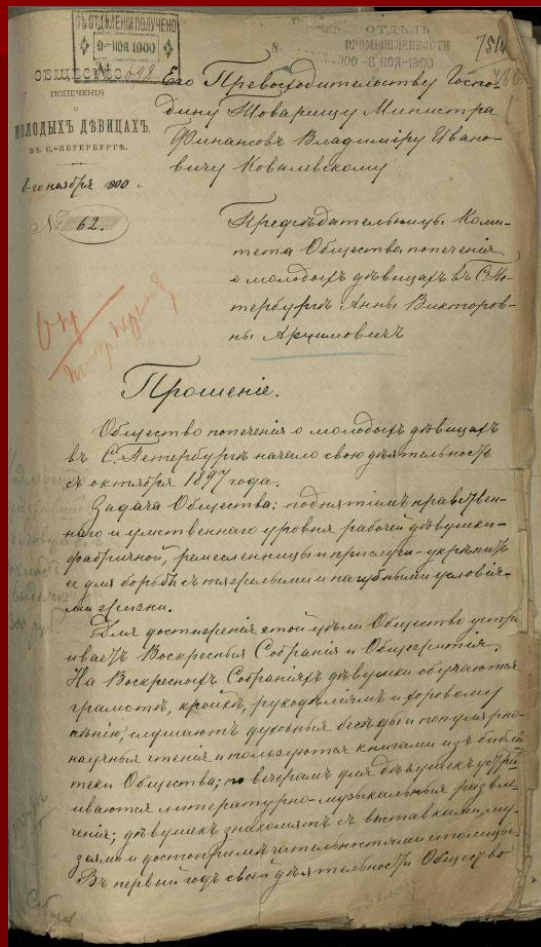 ВЪ ОТДѢЛЕНІИ ПОЛУЧЕНО
9-НОЯ 1900
698
ОТДѢЛЪ
ПРОМЫШЛЕННОСТИ
-8 НОЯ-1900
ОБЩЕСТВО
ПОПЕЧЕНІЯ
О
МОЛОДЫХЪ ДѢВИЦАХЪ.
ВЪ С.-ПЕТЕРБУРГѢ.
ноября 1900.
№ 62.
Его Превосходительству Госпо-
дину Товарищу Министра
Финансовъ Владиміру Ивано-
вичу Ковалевскому
Предсѣдательницы Коми-
тета Общества попеченія
о молодыхъ дѣвицахъ въ С.Пе-
тербургѣ Анны Викторов-
ны Арцимовичъ
Прошеніе.
Общество попеченія о молодыхъ дѣвицахъ
въ С. Петербургѣ начало свою дѣятельность
съ октября 1897 года.
Задача Общества: поднятіемъ нравствен-
наго и умственнаго уровня рабочей дѣвушки-
фабричной, ремесленницы и прислуги - укрѣпить
ее для борьбы съ тяжелыми и пагубными условія-
ми жизни.
Для достиженія этой цѣли Общество устра
иваетъ Воскресныя Собранія и Общежитія.
На Воскресныхъ Собраніяхъ дѣвушки обучаются
грамотѣ, кройкѣ, рукодѣліямъ и хоровому
пѣнію, слушаютъ духовныя бесѣды и популярно-
научныя чтенія и пользуются книгами изъ библіо
теки Общества; по вечерамъ для дѣвушекъ устра
иваются литературно-музыкальныя развле
ченія; дѣвушекъ знакомятъ съ выставками, му-
зеями и достопримѣчательностями столицы.
Въ первый годъ своей дѣятельности Общество